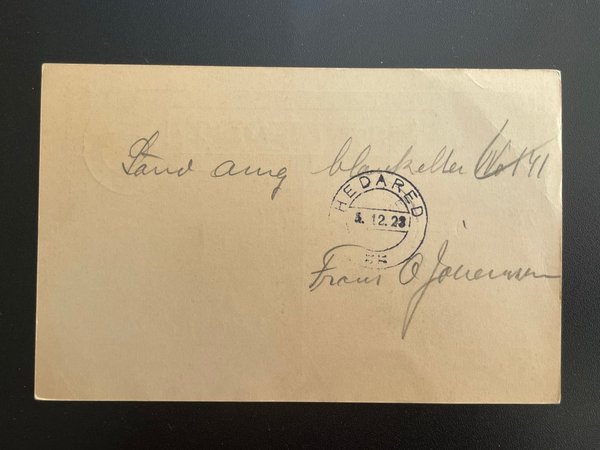 Sänd amg blanketter No 141
HEDARED
5.12.23
Frans O Johansson